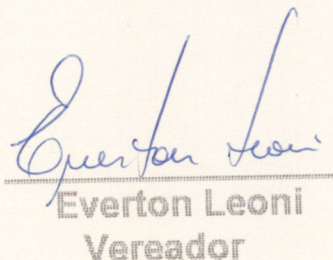 Everton Leoni
Everton Leoni
Vereador